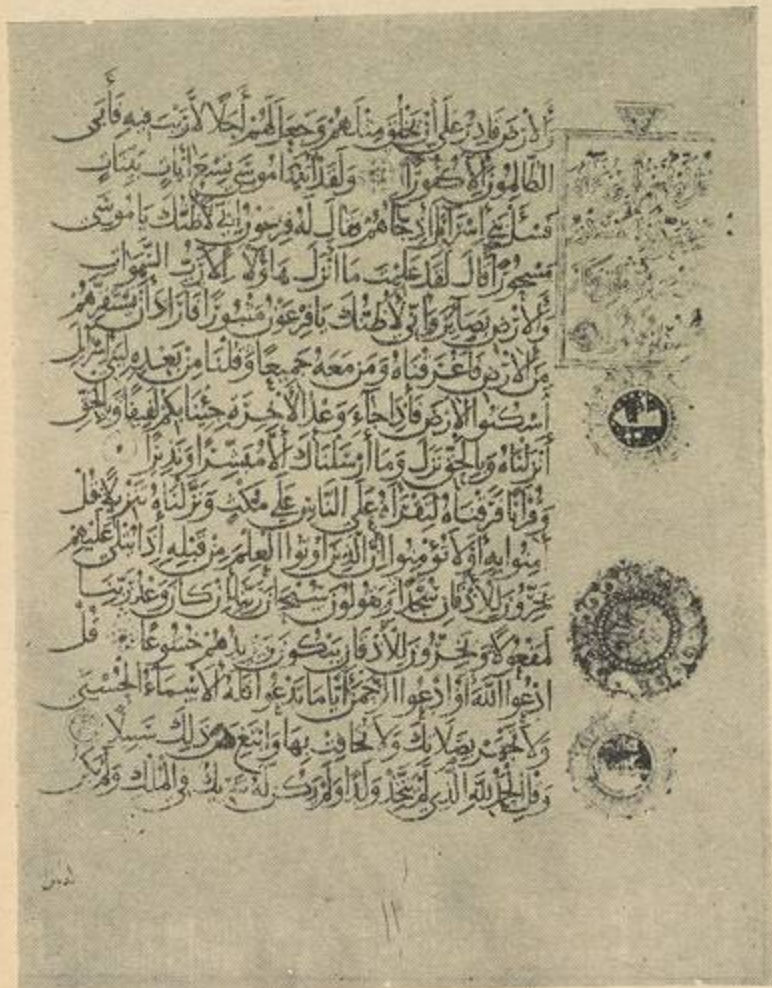 والارض قادر على ان يخلق مثلهم وجعل لهم أجلا لا ريب فيه فأبى
الظالمون الا كفورا ولقد اتينا موسى تسع ايات بينات
فسئل بني اسرائيل اذ جاءهم فقال له فرعون اني لأظنك يا موسى
مسحورا قال لقد علمت ما أنزل هاؤلاء الا رب السموات
والارض بصائر واني لأظنك يا فرعون مثبورا فاراد ان يستفزهم
من الارض فأغرقناه ومن معه جميعا وقلنا من بعده لبني اسرائيل
اسكنوا الارض فاذا جاء وعد الاخرة جئنا بكم لفيفا وبالحق
أنزلناه وبالحق نزل وما أرسلناك الا مبشرا ونذيرا
وقرانا فرقناه لتقرأه على الناس على مكث ونزلناه تنزيلا قل
امنوا به أو لا تؤمنوا ان الذين اوتوا العلم من قبله اذا يتلى عليهم
يخرون للأذقان سجدا ويقولون سبحان ربنا ان كان وعد ربنا
لمفعولا ويخرون للأذقان يبكون ويزيدهم خشوعا قل
ادعوا الله أو ادعوا الرحمن أيا ما تدعوا فله الاسماء الحسنى
ولا تجهر بصلاتك ولا تخافت بها وابتغ بين ذلك سبيلا
وقل الحمد لله الذي لم يتخذ ولدا ولم يكن له شريك في الملك ولم يكن